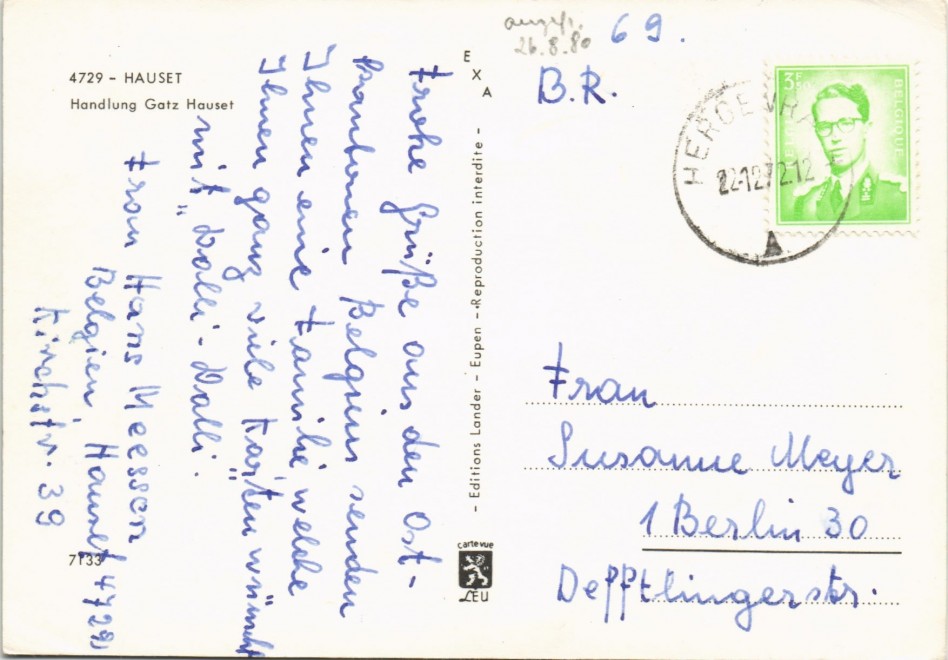 4729 - HAUSET
Handlung Gatz Hauset
Frohe Grüße aus den Ost-
kantonen Belgiens senden
Ihnen eine Familie, welche
Ihnen ganz viele Karten wünscht
mit "Dalli-Dalli.
Frau Hans Meessen
Belgien, Hauset 4729
Kirchstr. 39
7133
E
X
A
- Editions Lander - Eupen - Reproduction interdite -
cartevue
LEU
26.8.80
69.
B.R.
22-12
72 12
3F
50
BELGIQUE
Frau
Susanne Meyer
1 Berlin 30
Defftlingerstr.